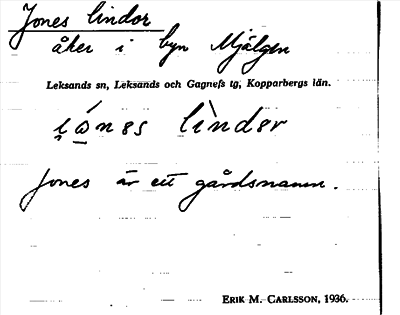 Jones lindor
åker i byn Mjälgen
Leksands sn, Leksands och Gagnefs tg, Kopparbergs län.
i̯ó̱nes lìndər
Jones är ett gårdsnamn.
ERIK M. CARLSSON, 1936.